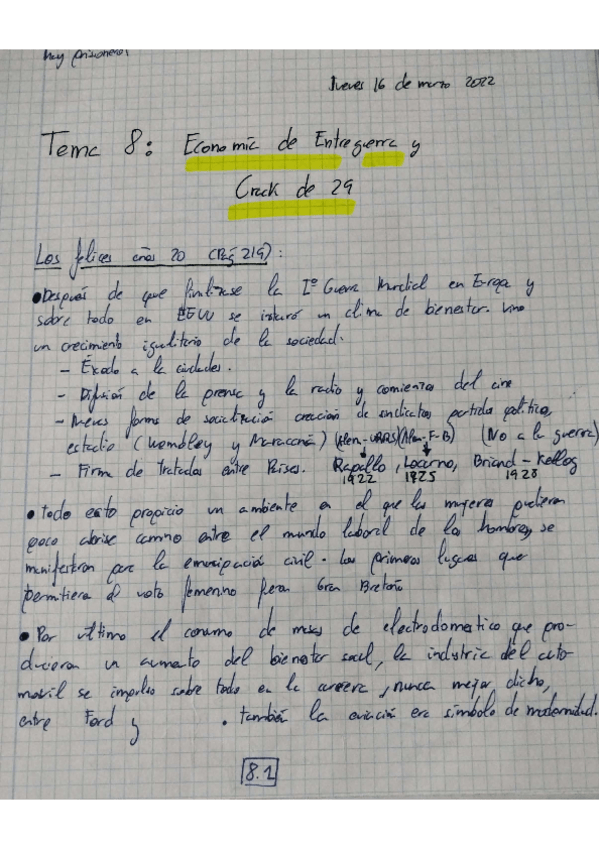 hay prisioneros
Jueves 16 de marzo 2022
Tema 8: Economía de Entreguerra y
Crack de 29
Los felices años 20 (Pág 219):
• Después de que finalizase la Iª Guerra Mundial en Europa y
sobre todo en EEUU se instauró un clima de bienestar. Vino
un crecimiento igualitario de la sociedad.
– Éxodo a la ciudades.
– Difusión de la prensa y la radio y comienzos del cine
– Nuevas forms de socialización creación de sindicatos partidos políticos,
estadio (Wembley y Maracaná) (Alem-URRS) (Alem-F-B) (No a la guerra)
– Firma de tratados entre Países. Rapallo, Locarno, Briand-Kellog
1922 1925 1928
• todo esto propicio un ambiente en el que las mujeres pudieran
poco abrise camino entre el mundo laboral de los hombres, se
manifestaron para la emancipación civil. Los primeros lugares que
permitiera el voto femenino fueron Gran Bretaña
• Por último el consumo de masas de electrodomestico que pro-
dujeron un aumento del bienestar social, la industria del auto-
movil se impulso sobre todo en la carrera, nunca mejor dicho,
entre Ford y . también la aviación era símbolo de modernidad.
8.1